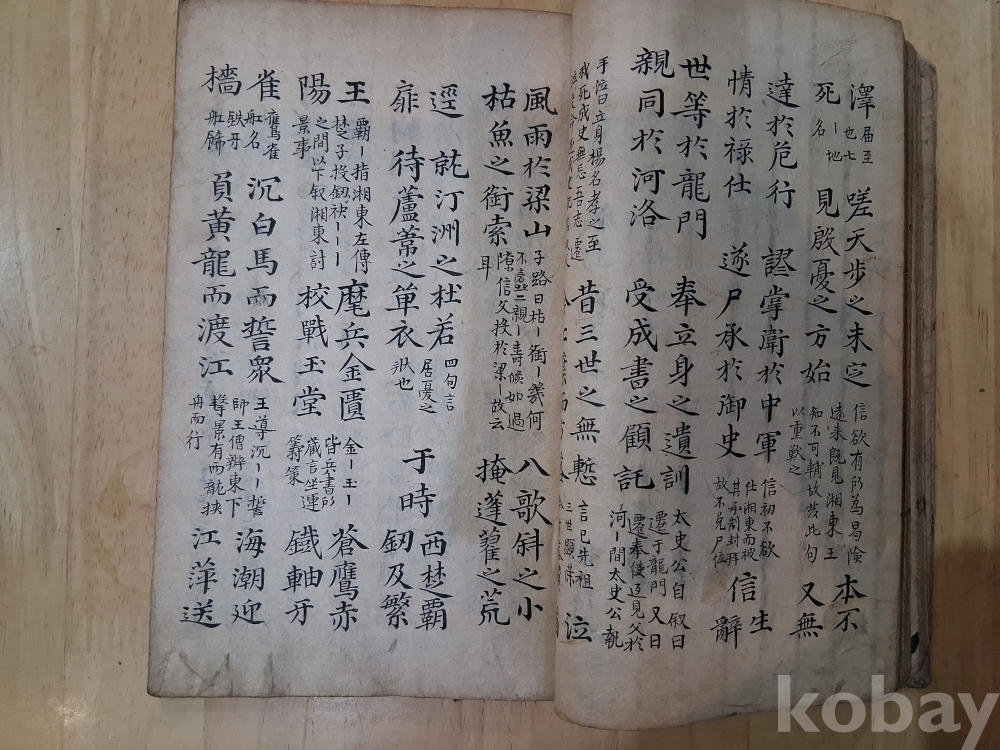 澤 届至也七 嗟天步之未定 信欲有所為曷險遠來既見湘東王 本不
死 ー地名 見殷憂之方始 知不可輔故發此句以重歎之 又無
達於危行 謬掌衛於中軍 信初不欲仕湘東而被 信生
情於祿仕 遂尸承於御史 其承制封拜故不免尸位 辭
世等於龍門 奉立身之遺訓 太史公自叙曰遷于龍門又曰
親同於河洛 受成書之顧託 遷奉使适見父於河ー間太史公執
手泣曰立身楊名孝之至我死成史無忘吾志遷 昔三世之無慙 言已先祖三世顯榮 泣
風雨於梁山 子路曰枯ー銜ー幾何不蠹二親ー壽倐如過 入歌斜之小
枯魚之銜索 隙信父投於梁ー故云耳 掩蓬藋之荒
逕 就汀洲之杜若 四句言居憂之 于時西楚霸
扉 待蘆葦之單衣 狀也 釰及繁
王 覇ー指湘東左傳楚子投釰袂ーー 麾兵金匱 金ー玉ー皆兵書所 蒼鷹赤
陽 之間以下叙湘東討景事 校戰玉堂 蔵言坐運籌策 鐵軸牙
雀 鷹雀舡名 沉白馬而誓衆 王導沉ー誓師王僧辨東下 海潮迎
檣 鉄牙舡餙 負黃龍而渡江 擊景有兩龍挾舟而行 江萍送
kobay